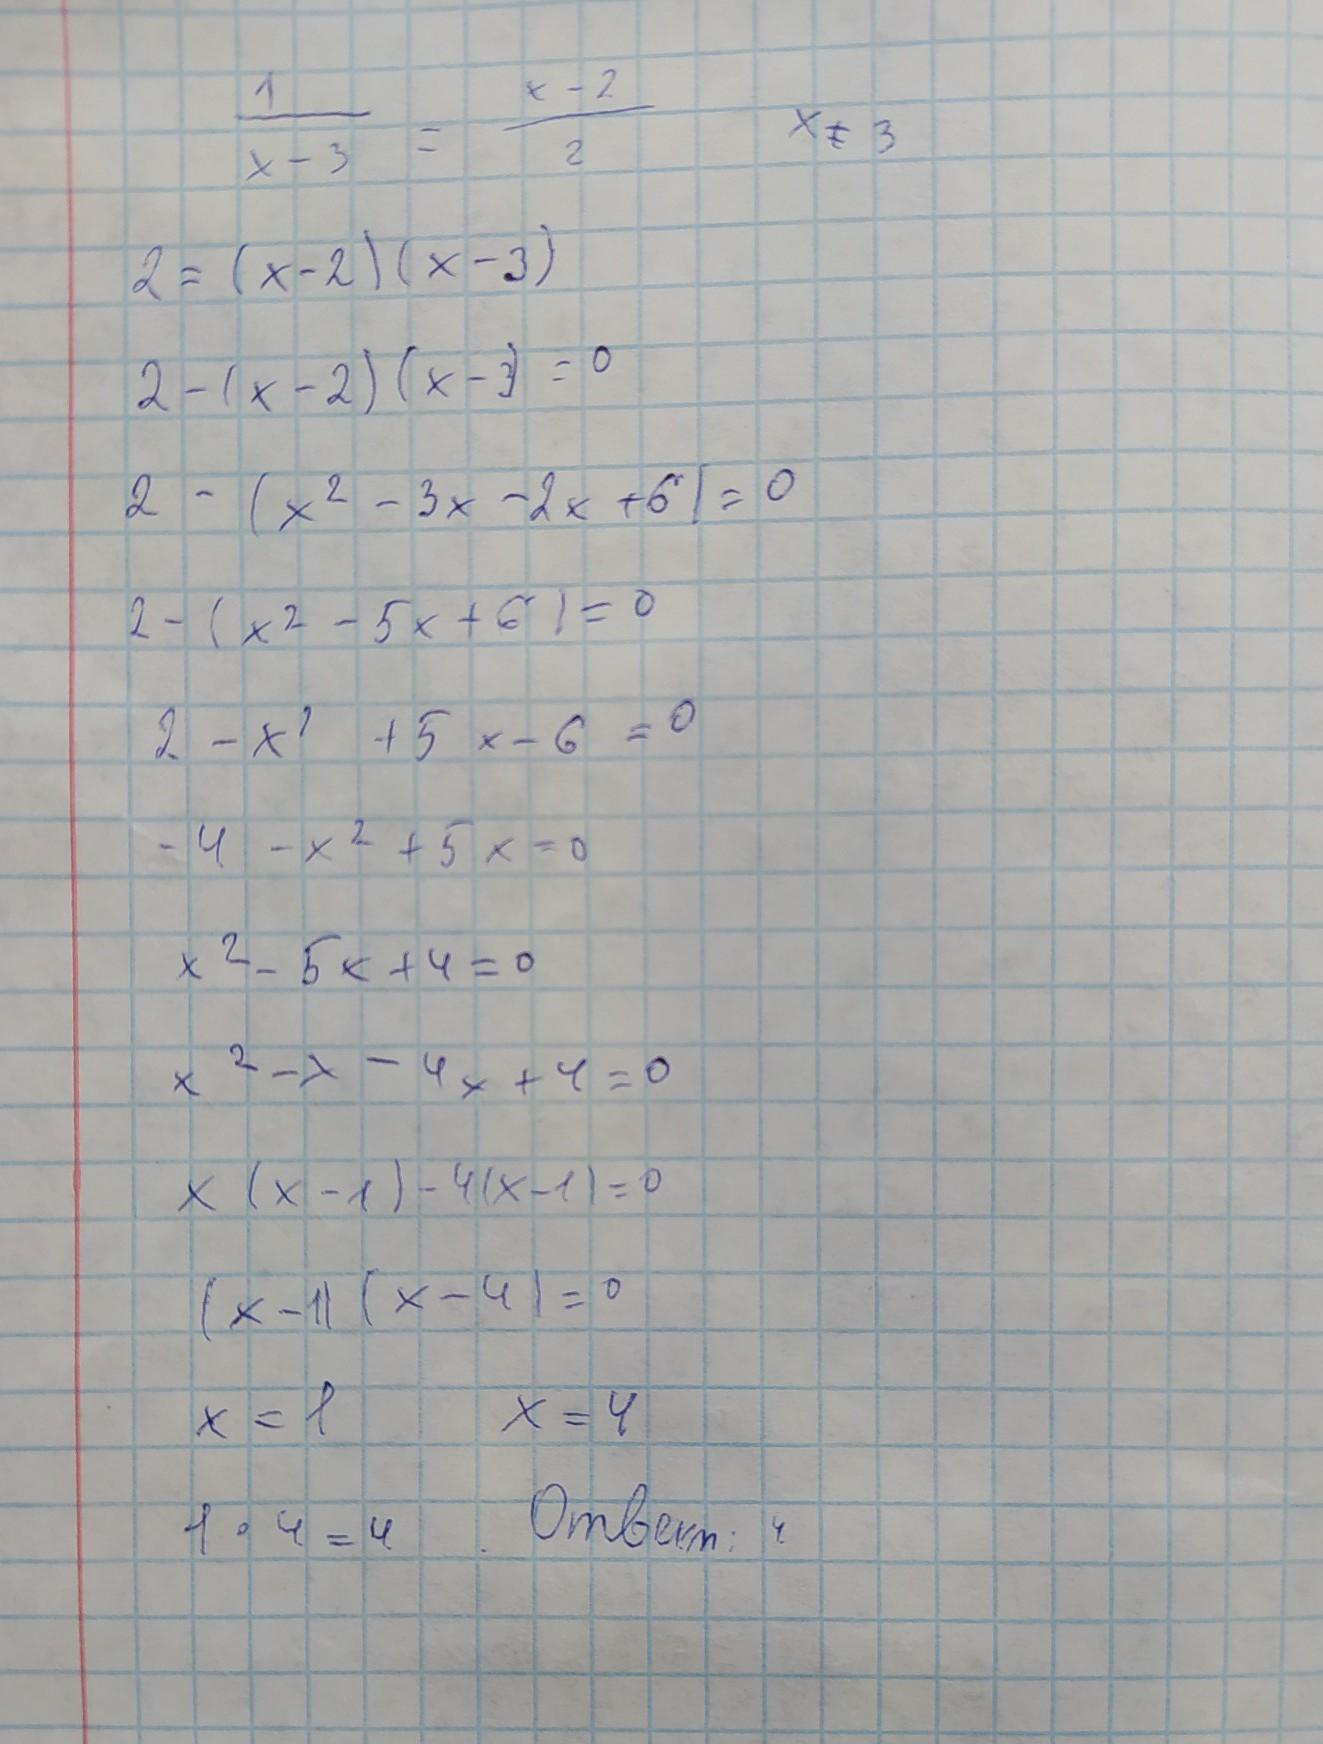 1/(x-3) = (x-2)/2   x ≠ 3
2 = (x-2)(x-3)
2-(x-2)(x-3) = 0
2 - (x² - 3x - 2x + 6) = 0
2 - (x² - 5x + 6) = 0
2 - x² + 5x - 6 = 0
-4 - x² + 5x = 0
x² - 5x + 4 = 0
x² - x - 4x + 4 = 0
x (x-1) - 4(x-1) = 0
(x-1)(x-4) = 0
x = 1   x = 4
1 · 4 = 4 . Ответ: 4